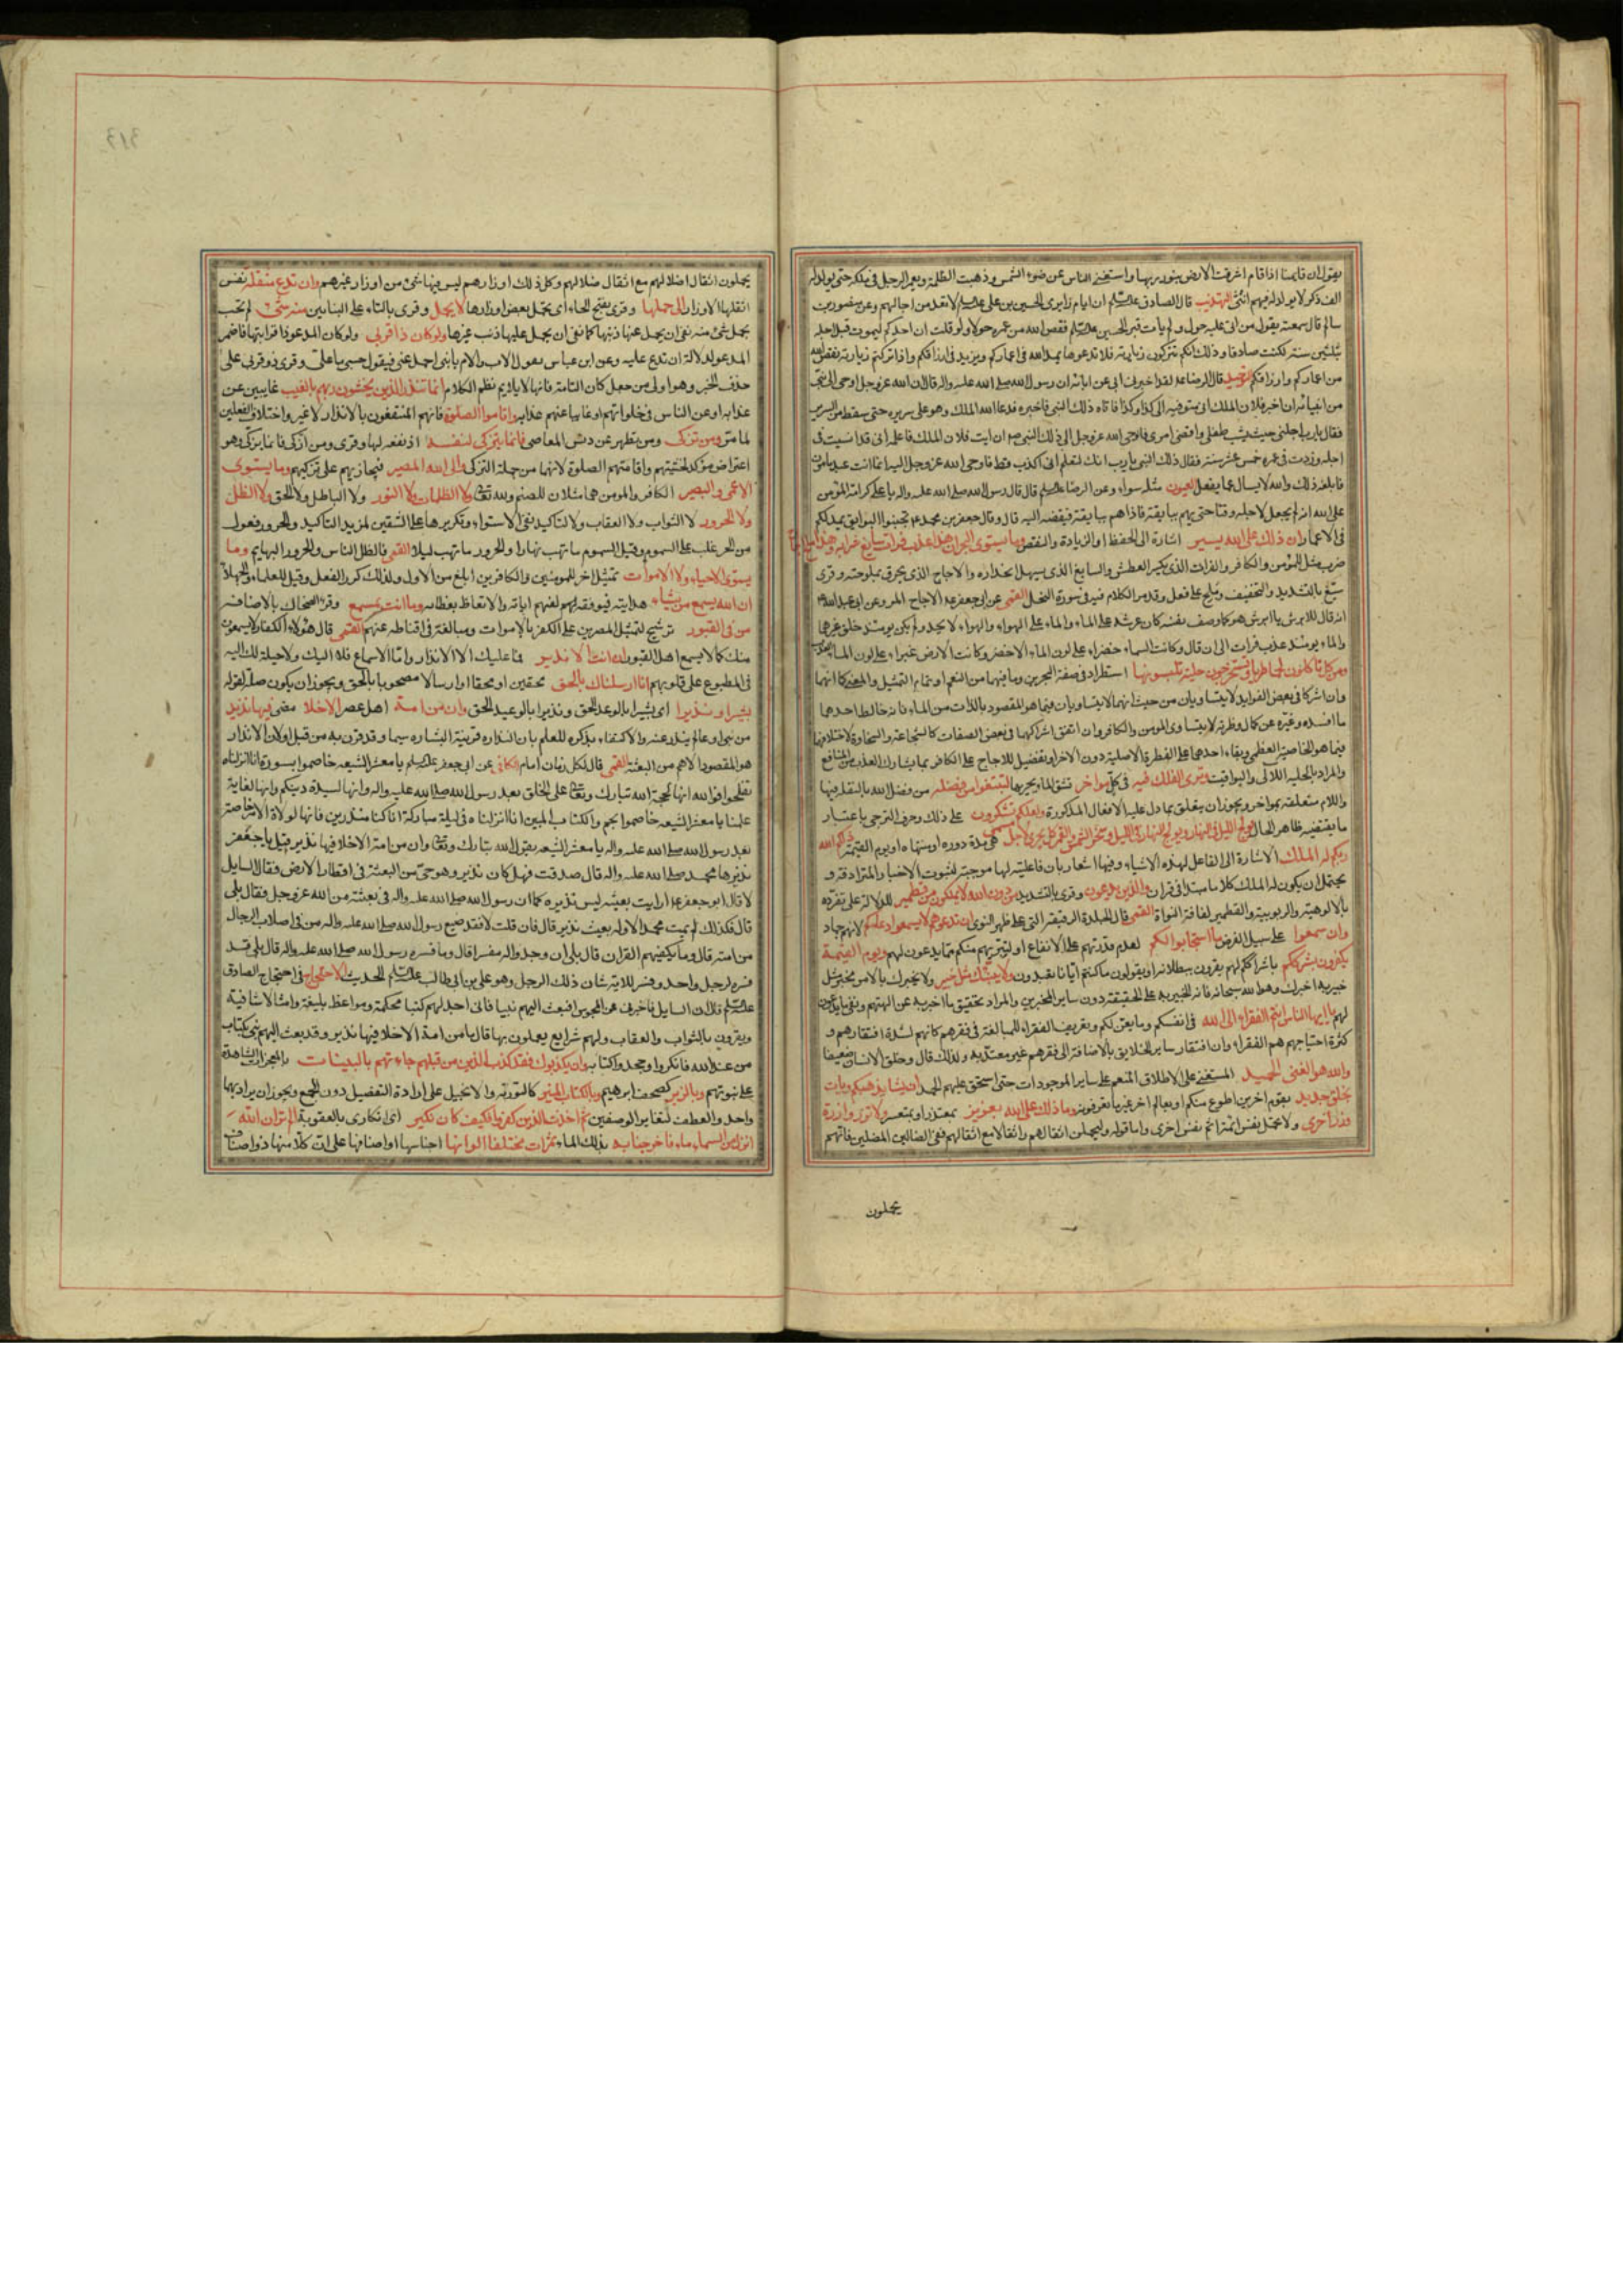 يقول ان قايمنا اذا قام اشرقت الارض بنور ربها واستغنى الناس عن ضوء الشمس وذهبت الظلمة ويعمر الرجل فى ملكه حتى يولد له
الف ذكر لا يولد له فيهم انثى التهذيب قال الصادق ان ايام زايرى الحسين بن على لا تعد من اجالهم وعن منصور بن
سالم قال سمعته يقول من اتى عليه حول ولم يات قبر الحسين نقص الله من عمره حولا ولو قلت ان احدكم ليموت قبل اجله
بثلثين سنة لكنت صادقا وذلك انكم تتركون زيارته فلا تدعوها يمد الله فى اعماركم ويزيد فى ارزاقكم واذا تركتم زيارته نقص الله
من اعماركم وارزاقكم التوحيد قال الرضا لقد اخبرنى ابى عن ابائه ان رسول الله صلى الله عليه واله قال ان الله عز وجل اوحى الى نبى
من انبيائه ان اخبر فلان الملك انى متوفيه الى كذا وكذا فاتاه ذلك النبى فاخبره فدعا الله الملك وهو على سريره حتى سقط من السرير
فقال يا رب اجلنى حتى يشب طفلى واقضى امرى فاوحى الله عز وجل الى ذلك النبى ان ايت فلان الملك فاعلمه انى قد انسيت فى
اجله وزدت فى عمره خمس عشر سنة فقال ذلك النبى يا رب انك لتعلم انى لم اكذب قط فاوحى الله عز وجل اليه انما انت عبد مامور
فابلغه ذلك والله لا يسال عما يفعل العيون مثله سواء وعن الرضا قال قال رسول الله صلى الله عليه واله يا على كرامة المؤمن
على الله انه لم يجعل لاجله وقتا حتى يهم ببايقة فاذا هم ببايقة قبضه اليه قال وقال جعفر بن محمد تجنبوا البوايق يمد لكم
فى الاعمار ان ذلك على الله يسير اشارة الى الحفظ او الزيادة والنقص وما يستوى البحران هذا عذب فرات سايغ شرابه وهذا ملح اجاج
ضرب مثل للمؤمن والكافر والفرات الذى يكسر العطش والسايغ الذى يسهل انحداره والاجاج الذى يحرق بملوحته وقرى
سيّغ بالتشديد والتخفيف وملح على فعل وقد مر الكلام فيه فى سورة النحل القمى عن ابى جعفر الاجاج المر وعن ابى عبد الله
انه قال للابرش يا ابرش هو كما وصف نفسه كان عرشه على الماء والماء على الهواء والهواء لا يحد ولم يكن يومئذ خلق غيرهما
والماء يومئذ عذب فرات الى ان قال وكانت السماء خضراء على لون الماء الاخضر وكانت الارض غبراء على لون الماء العذب
ومن كل تاكلون لحما طريا وتستخرجون حلية تلبسونها استطراد فى صفة البحرين وما فيهما من النعم او تمام التمثيل والمعنى كما انهما
وان اشتركا فى بعض الفوايد لا يتساويان من حيث انهما لا يتساويان فيما هو المقصود بالذات من الماء فانه خالط احدهما
ما افسده وغيره عن كمال فطرته لا يتساوى المومن والكافر وان اتفق اشتراكهما فى بعض الصفات كالشجاعة والسخاوة لاختلافهما
فيما هو الخاصية العظمى وبقاء احدهما على الفطرة الاصلية دون الاخر او تفضيل للاجاج على الكافر بما يشارك العذب من المنافع
والمراد بالحلية اللآلى واليواقيت وترى الفلك فيه فى كل مواخر تشق الماء بجريها لتبتغوا من فضله من فضل الله بالنقلة فيها
واللام متعلقة بمواخر ويجوز ان يتعلق بما دل عليه الافعال المذكورة ولعلكم تشكرون على ذلك وحرف الترجى باعتبار
ما يقتضيه ظاهر الحال يولج الليل فى النهار ويولج النهار فى الليل وسخر الشمس والقمر كل يجرى لاجل مسمى هى مدة دوره او منتهاه او يوم القيمة ذلكم الله
ربكم له الملك الاشارة الى الفاعل لهذه الاشياء وفيها اشعار بان فاعليته لها موجبة لثبوت الاخبار المترادفة و
يحتمل ان يكون له الملك كلاما مبتدا فى قران والذين يدعون وقرى بالتشديد من دون الله لا يملكون من قطمير للدلالة على تفرده
بالالوهية والربوبية والقطمير لفافة النواة القمى قال الجلدة الرقيقة التى على ظهر النوى ان تدعوهم لا يسمعوا دعاءكم لانهم جماد
وان سمعوا على سبيل الفرض ما استجابوا لكم لعدم قدرتهم على الانفاع او لتبرئهم منكم مما تدعون لهم ويوم القيمة
يكفرون بشرككم باشراككم لهم يقرون ببطلانه او يقولون ما كنتم ايانا تعبدون ولا ينبئك مثل خبير ولا يخبرك بالامر مخبر مثل
خبير به اخبرك وهو الله سبحانه فانه الخبير به على الحقيقة دون ساير المخبرين والمراد تحقيق ما اخبر به عن الهتهم ونفى ما يدعون
لهم يا ايها الناس انتم الفقراء الى الله فى انفسكم وما يعن لكم وتعريف الفقراء للمبالغة فى فقرهم كانهم لشدة افتقارهم و
كثرة احتياجهم هم الفقراء وان افتقار ساير الخلايق بالاضافة الى فقرهم غير معتد به ولذلك قال وخلق الانسان ضعيفا
والله هو الغنى الحميد المستغنى على الاطلاق المنعم على ساير الموجودات حتى استحق عليهم الحمد ان يشا يذهبكم ويات
بخلق جديد بقوم اخرين اطوع منكم او بعالم اخر غير ما تعرفونه وما ذلك على الله بعزيز بمتعذر او بمتعسر ولا تزر وازرة
وزر اخرى ولا تحمل نفس اثمة اثم نفس اخرى واما قوله وليحملن اثقالهم واثقالا مع اثقالهم ففى الضالين المضلين فانهم
يحملون
يحملون اثقال اضلالهم مع اثقال ضلالهم وكل ذلك اوزارهم ليس فيها شىء من اوزار غيرهم وان تدع مثقلة نفس
اثقلها الاوزار الى حملها وقرى بفتح الحاء اى تحمل بعض اوزارها لا يحمل وقرى بالتاء على البناءين منه شىء لم تجب
بحمل شىء منه نفى ان يحمل عنها ذنبها كما نفى ان يحمل عليها ذنب غيرها ولو كان ذا قربى ولو كان المدعو ذا قرابتها فاضمر
المدعو لدلالة ان تدع عليه وعن ابن عباس يقول الاب والام يا بنى احمل عنى فيقول حسبى ما على وقرى ذو قربى على
حذف الخبر وهو اولى من جعل كان التامة فانها لا يلايم نظم الكلام انما تنذر الذين يخشون ربهم بالغيب غايبين عن
عذابه او عن الناس فى خلواتهم او غايبا عنهم عذابه واقاموا الصلوة فانهم المنتفعون بالانذار لا غير واختلاف الفعلين
لما مر ومن تزكى ومن تطهر عن دنس المعاصى فانما يتزكى لنفسه اذ نفعه لها وقرى ومن ازكى فانما يزكى وهو
اعتراض مؤكد لخشيتهم واقامتهم الصلوة لانهما من جملة التزكى والى الله المصير فيجازيهم على تزكيهم وما يستوى
الاعمى والبصير الكافر والمومن هما مثلان للصنم ولله تعالى ولا الظلمات ولا النور ولا الباطل ولا الحق ولا الظل
ولا الحرور لا الثواب ولا العقاب ولا لتاكيد نفى الاستواء وتكريرها على الشقين لمزيد التاكيد والحرور فعول
من الحر غلب على السموم وقيل السموم ما تهب نهارا والحرور ما تهب ليلا القمى فالظل الناس والحرور البهايم وما
يستوى الاحياء ولا الاموات تمثيل اخر للمومنين والكافرين ابلغ من الاول ولذلك كرر الفعل وقيل للعلماء والجهلاء
ان الله يسمع من يشاء هدايته فيوفقه لفهم اياته والاتعاظ بعظاته وما انت بمسمع وقرء الضحاك بالاضافة
من فى القبور ترشيح لتمثيل المصرين على الكفر بالاموات ومبالغة فى اقناطه عنهم القمى قال هؤلاء الكفار لا يسمعون
منك كما لا يسمع اهل القبور ان انت الا نذير فما عليك الا الانذار واما الاسماع فلا اليك ولا حيلة لك اليه
فى المطبوع على قلوبهم انا ارسلناك بالحق محقين او محقا او ارسالا مصحوبا بالحق ويجوز ان يكون صلة لقوله
بشيرا ونذيرا اى بشيرا بالوعد الحق ونذيرا بالوعيد الحق وان من امة اهل عصر الا خلا مضى فيها نذير
من نبى او عالم ينذر عنه والاكتفاء بذكره للعلم بان النذارة قرينة البشارة سيما وقد قرن به من قبل او لان الانذار
هو المقصود الاهم من البعثة القمى قال لكل زمان امام الكافى عن ابى جعفر يا معشر الشيعة خاصموا بسورة انا انزلناه
تفلحوا فوالله انها لحجة الله تبارك وتعالى على الخلق بعد رسول الله صلى الله عليه واله وانها لسيدة دينكم وانها لغاية
علمنا يا معشر الشيعة خاصموا بحم والكتاب المبين انا انزلناه فى ليلة مباركة انا كنا منذرين فانها لولاة الامر خاصة
بعد رسول الله صلى الله عليه واله يا معشر الشيعة يقول الله تبارك وتعالى وان من امة الا خلا فيها نذير قيل يا با جعفر
نذيرها محمد صلى الله عليه واله قال صدقت فهل كان نذير وهو حى من البعثة فى اقطار الارض فقال السايل
لا قال ابو جعفر ارايت بعيثه ليس نذيره كما ان رسول الله صلى الله عليه واله فى بعثته من الله عز وجل فقال بلى
قال فكذلك لم يمت محمد الا وله بعيث نذير قال فان قلت لا فقد ضيع رسول الله صلى الله عليه واله من فى اصلاب الرجال
من امته قال وما يكفيهم القران قال بلى ان وجدوا له مفسرا قال وما فسره رسول الله صلى الله عليه واله قال بلى قد
فسره لرجل واحد وفسر للامة شان ذلك الرجل وهو على بن ابى طالب الحديث الاحتجاج فى احتجاج الصادق
قال السايل فاخبرنى عن المجوس افبعث اليهم نبيا فانى اجد لهم كتبا محكمة ومواعظ بليغة وامثالا شافية
ويقرون بالثواب والعقاب ولهم شرايع يعملون بها قال ما من امة الا خلا فيها نذير وقد بعث اليهم نبى بكتاب
من عند الله فانكروا وجحدوا كتابه وان يكذبوك فقد كذب الذين من قبلهم جاءتهم بالبينات بالمعجزات الشاهدة
على نبوتهم وبالزبر كصحف ابرهيم وبالكتاب المنير كالتورية والانجيل على ارادة التفصيل دون الجمع ويجوز ان يراد بهما
واحد والعطف لتغاير الوصفين ثم اخذت الذين كفروا فكيف كان نكير اى انكارى بالعقوبة الم تر ان الله
انزل من السماء ماء فاخرجنا به بذلك الماء ثمرات مختلفا الوانها اجناسها او اصنافها على ان كلا منها ذو اصناف